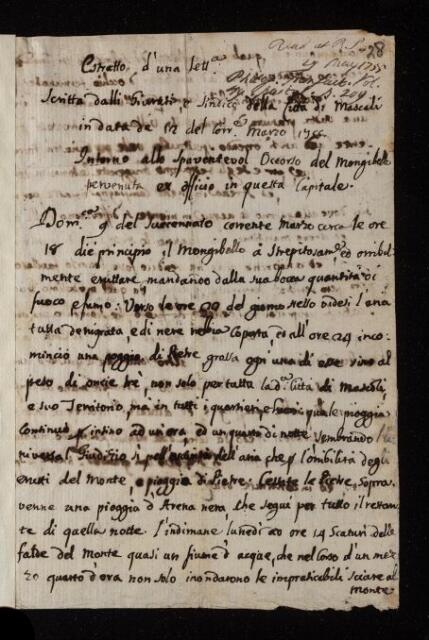 28
Read at R.S.
May 1755
Estratto d'una lett.ra
scritta dalli Giurati e Sindico della Città di Mascali
in data de 12 del corr. Marzo 1755.
Intorno allo spaventevol Occorso del Mongibello
pervenuta ex officio in questa Capitale.
Dom.ca 9 del succennato corrente Marzo circa le ore
18 diè principio il Mongibello à strepitosam.te ed orribil-
mente eruttare, mandando dalla sua bocca quantità di
fuoco e fumo: Verso le ore 22 del giorno stesso videsi l'aria
tutta denigrata e di nere nebbia coperta, ed all'ore 24 inco-
minciò una pioggia di Pietre grossa ogn'una di esse sino al
peso di oncie trè, non solo per tutta la d.a Città di Mascali
e suo Territorio, ma in tutti i quartieri quale pioggia
continuò intino ad un'ora ed un quarto di notte sembrando l'
niversal Giudizio sì dell'aria che l'orribilità degli
eruti del Monte, e pioggia di Pietre. Cessate le Pietre, sopra-
venne una pioggia d'Arena nera che seguì per tutto il restan-
te di quella notte. l'indimane lunedì ad ore 14 scaturì dalle
falde del Monte quasi un fiume d'acque, che nel corso d'un mez-
zo quarto d'ora non solo inondarono le impraticabili sciare al
monte